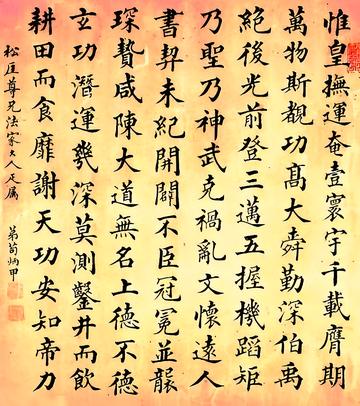 惟皇撫運奄壹寰宇千載膺期
萬物斯覩功髙大舜勤深伯禹
絕後光前登三邁五握機蹈矩
乃聖乃神武克禍亂文懷遠人
書契未紀開闢不臣冠冕並襲
琛贄咸陳大道無名上德不德
玄功潛運幾深莫測鑿井而飲
耕田而食靡謝天功安知帝力
松厓尊兄法家大人正属
弟荀炳甲